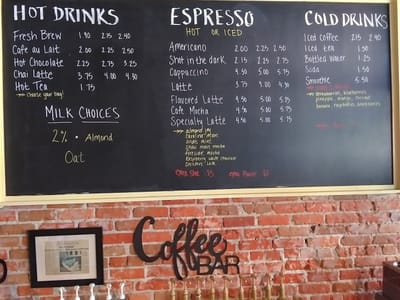 HOT DRINKS
Fresh Brew 1.90 2.15 2.40
Cafe au Lait 2.00 2.25 2.50
Hot Chocolate 2.25 2.75 3.25
Chai Latte 3.75 4.00 4.50
Hot Tea 1.75
choose your bag!
MILK CHOICES
2% • Almond
Oat
ESPRESSO
HOT OR ICED
Americano 2.00 2.25 2.50
Shot in the dark 2.15 2.75 2.75
Cappuccino 4.50 5.00 5.75
Latte 3.75 4.00 4.50
Flavored Latte 4.50 5.00 5.75
Cafe Mocha 4.50 5.00 5.75
Specialty Latte 4.50 5.00 5.75
almond joy
raspberry white chocolate
extra Shot .75
extra Flavor
COLD DRINKS
Iced Coffee 2.15 2.40
Iced tea 1.50
Bottled Water 1.25
Soda 1.50
Smoothie 5.50
Coffee
BAR